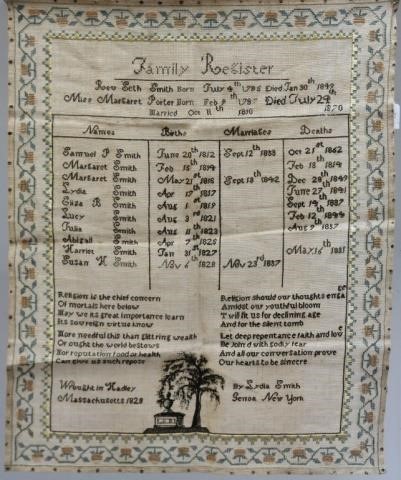 Family Register
Revd Seth Smith Born July 4th 1785 Died Jan 30th 1849
Miss Margaret Porter Born Feb 9th 1787 Died July 24th 1870
Married Oct 11th 1810
Names Births Marriages Deaths
Samuel P Smith June 20th 1812 Sept 12th 1838 Oct 21st 1862
Margaret Smith Feb 15th 1814 Feb 18th 1814
Margaret Smith May 21st 1816 Sept 13th 1842 Dec 28th 1849
Lydia Smith Apr 17th 1817 June 27th 1841
Eliza B Smith Aug 1st 1819 Sept 14th 1887
Lucy Smith Aug 3rd 1821 Feb 12th 1844
Julia Smith Aug 11th 1823 Aug 9th 1837
Abigail Smith Apr 7th 1825
Harriet Smith Jan 31st 1827 May 16th 1851
Susan H Smith Nov 6th 1828 Nov 23rd 1857
Religion is the chief concern
Of mortals here below
May we its great importance learn
Its sovreign virtue know
More needful this than glittring wealth
Or ought the world bestows
Nor reputation food or health
Can give us such repose
Religion should our thoughts engage
Amidst our youthful bloom
Twill fit us for declining age
And for the silent tomb
Let deep repentance faith and love
Be joind with godly fear
And all our conversation prove
Our hearts to be sincere
Wrought in Hadley
Massachusetts 1828
By Lydia Smith
Genoa New York